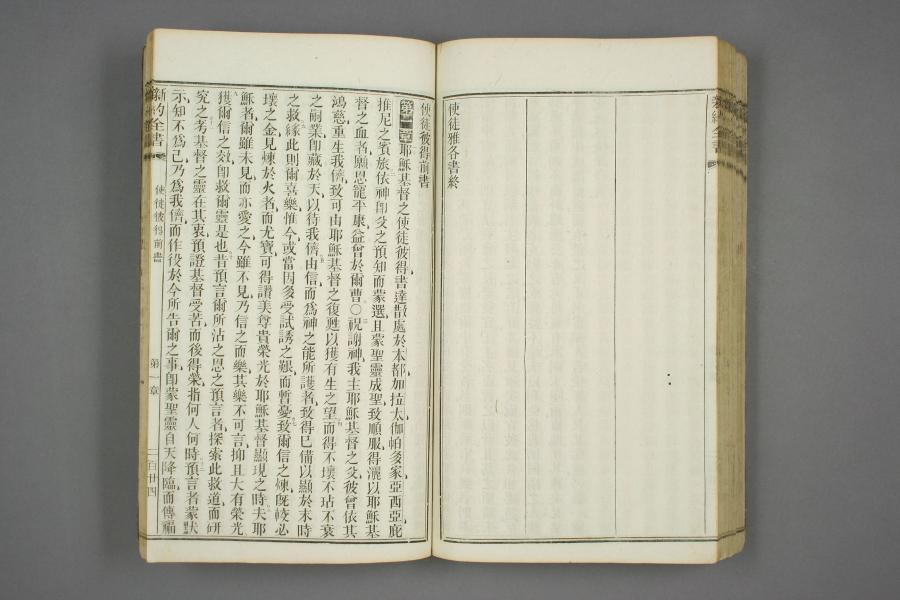 新約全書
使徒雅各書終
使徒彼得前書
第一章 耶穌基督之使徒彼得書達散處於本都加拉太伽帕多家亞西亞庇
推尼之賓旅依神卽父之預知而蒙選且蒙聖靈成聖致順服得灑以耶穌基
督之血者願恩寵平康益曾於爾曹〇祝謝神我主耶穌基督之父彼曾依其
鴻慈重生我儕致可由耶穌基督之復甦以獲有生之望而得不壞不玷不衰
之嗣業卽藏於天以待我儕由信而爲神之能所護者致得已備以顯於末時
之救緣此則爾喜樂惟今或當因多受試誘之艱而暫憂致爾信之煉旣較必
壞之金見煉於火者而尤寶可得讚美尊貴榮光於耶穌基督顯現之時夫耶
穌者爾雖未見而亦愛之今雖不見乃信之而樂其樂不可言抑且大有榮光
獲爾信之效卽救爾靈是也昔預言爾所沾之恩之預言者探索此救道而研
究之考基督之靈在其衷預證基督受苦而後得榮指何人何時預言者蒙默
示知不爲己乃爲我儕而作役於今所告爾之事卽蒙聖靈自天降臨而傳福
新約全書
使徒彼得前書
第一章
一百廿四